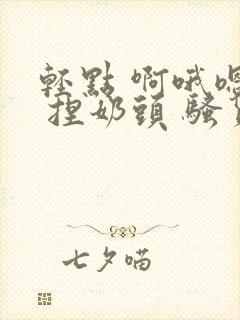 輕點 啊哦嗯
捏奶頭 騷
七夕喵